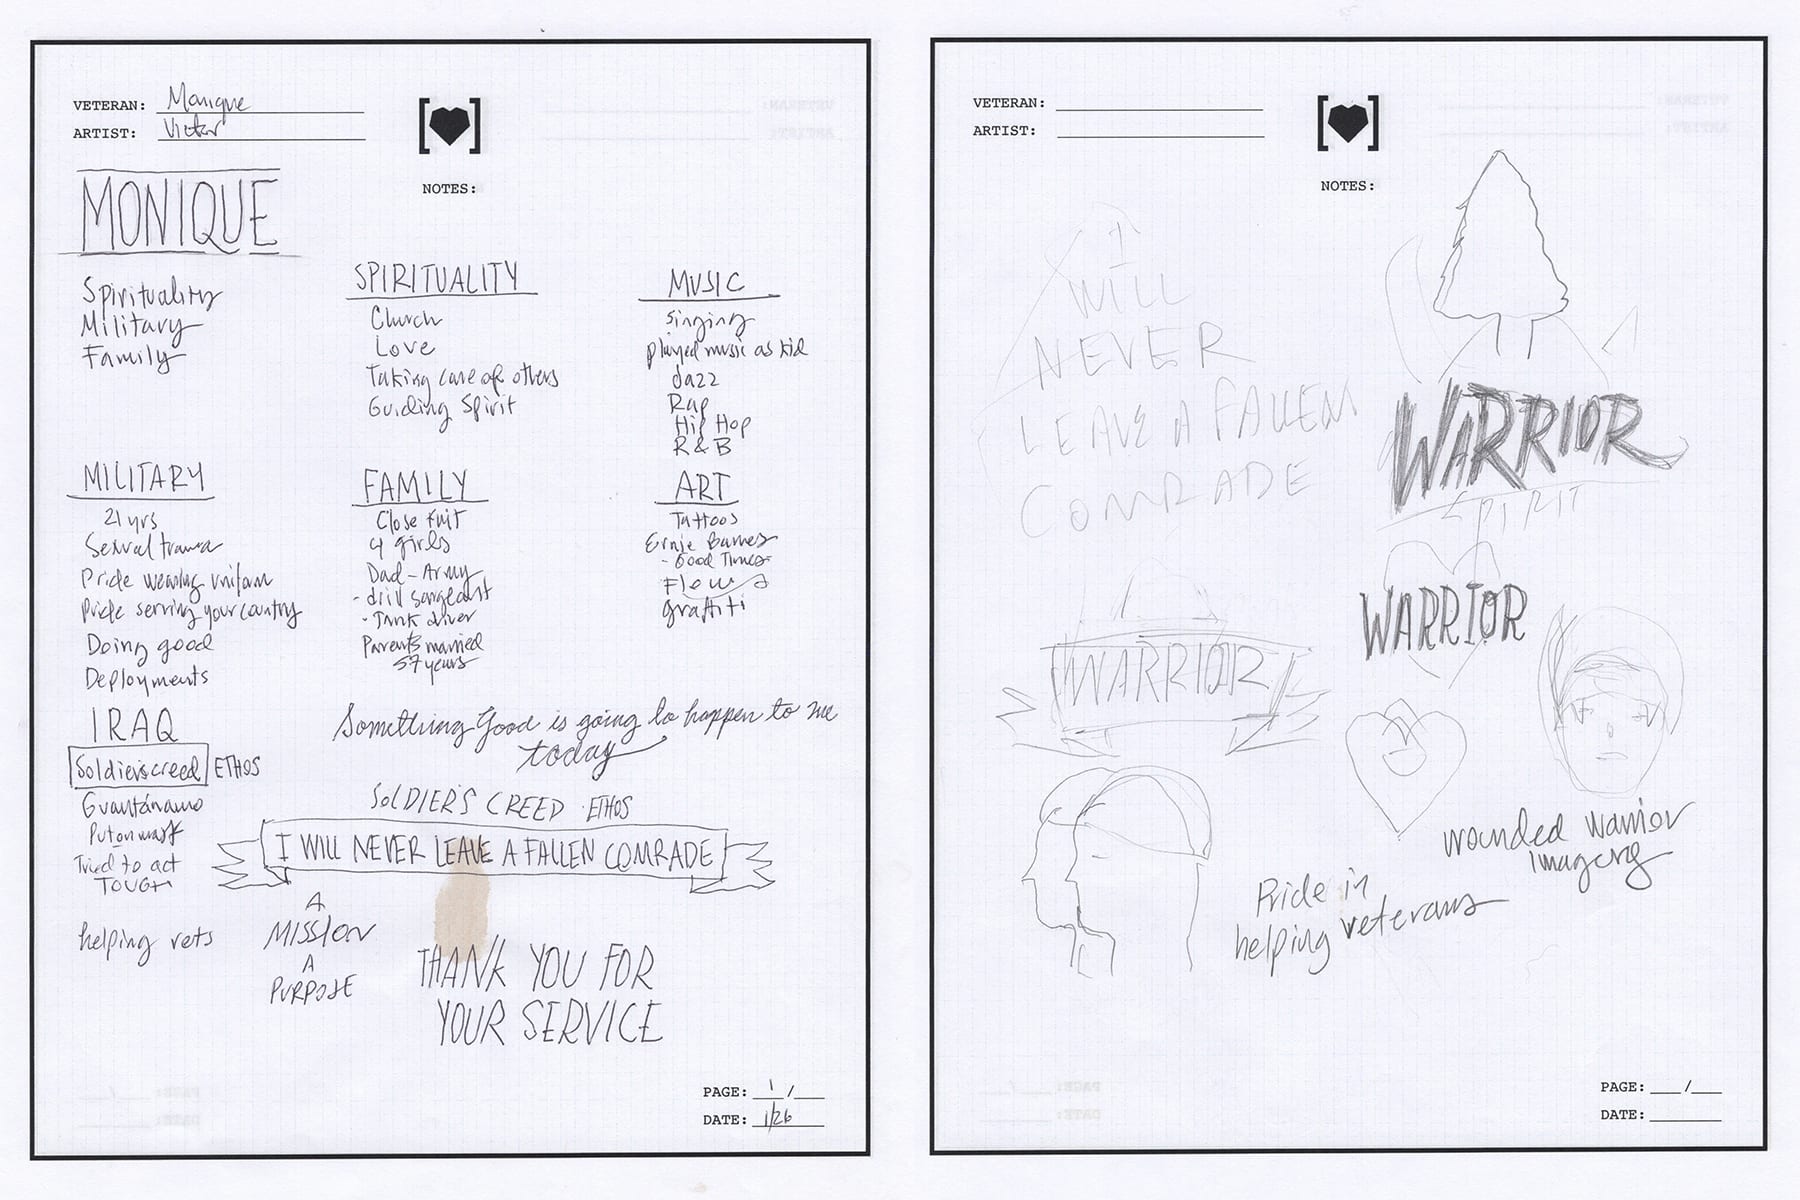 VETERAN: Monique
ARTIST: Victor
NOTES:
MONIQUE
Spirituality
Military
Family
SPIRITUALITY
Church
Love
Taking care of others
Guiding Spirit
MUSIC
Singing
played music as kid
Jazz
Rap
Hip Hop
R&B
MILITARY
21 yrs
Sexual trauma
Pride wearing uniform
Pride serving your country
Doing good
Deployments
IRAQ
Soldier's creed ETHOS
Guantánamo
Put on mask
Tried to act
TOUGH
helping vets
FAMILY
Close knit
4 girls
Dad - Army
- drill sargeant
- Tank driver
Parents married
57 years
ART
Tattoos
Ernie Barnes
- Good Times
Flows
graffiti
Something Good is going to happen to me
today
SOLDIER'S CREED ETHOS
I WILL NEVER LEAVE A FALLEN COMRADE
A
MISSION
A
PURPOSE
THANK YOU FOR
YOUR SERVICE
PAGE: 1 /
DATE: 1/26
VETERAN:
ARTIST:
NOTES:
I
WILL
NEVER
LEAVE A FALLEN
COMRADE
WARRIOR
SPIRIT
WARRIOR
WARRIOR
wounded warrior
imagery
Pride in
helping veterans
PAGE: /
DATE: